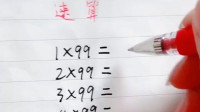 速算
1×99=
2×99=
3×99=